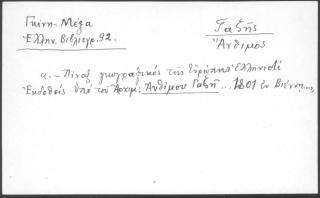 Γκίνη-Μέξα
Ἑλλην. Βιβλιογρ. 92.
Γαζῆς
Ἄνθιμος
α.- Πίναξ γεωγραφικὸς τῆς Εὐρώπης Ἑλληνιστὶ
Ἐκδοθεὶς ὑπὸ τοῦ Ἀρχιμ: Ἀνθίμου Γαζῆ... 1801 ἐν Βιέννῃ...